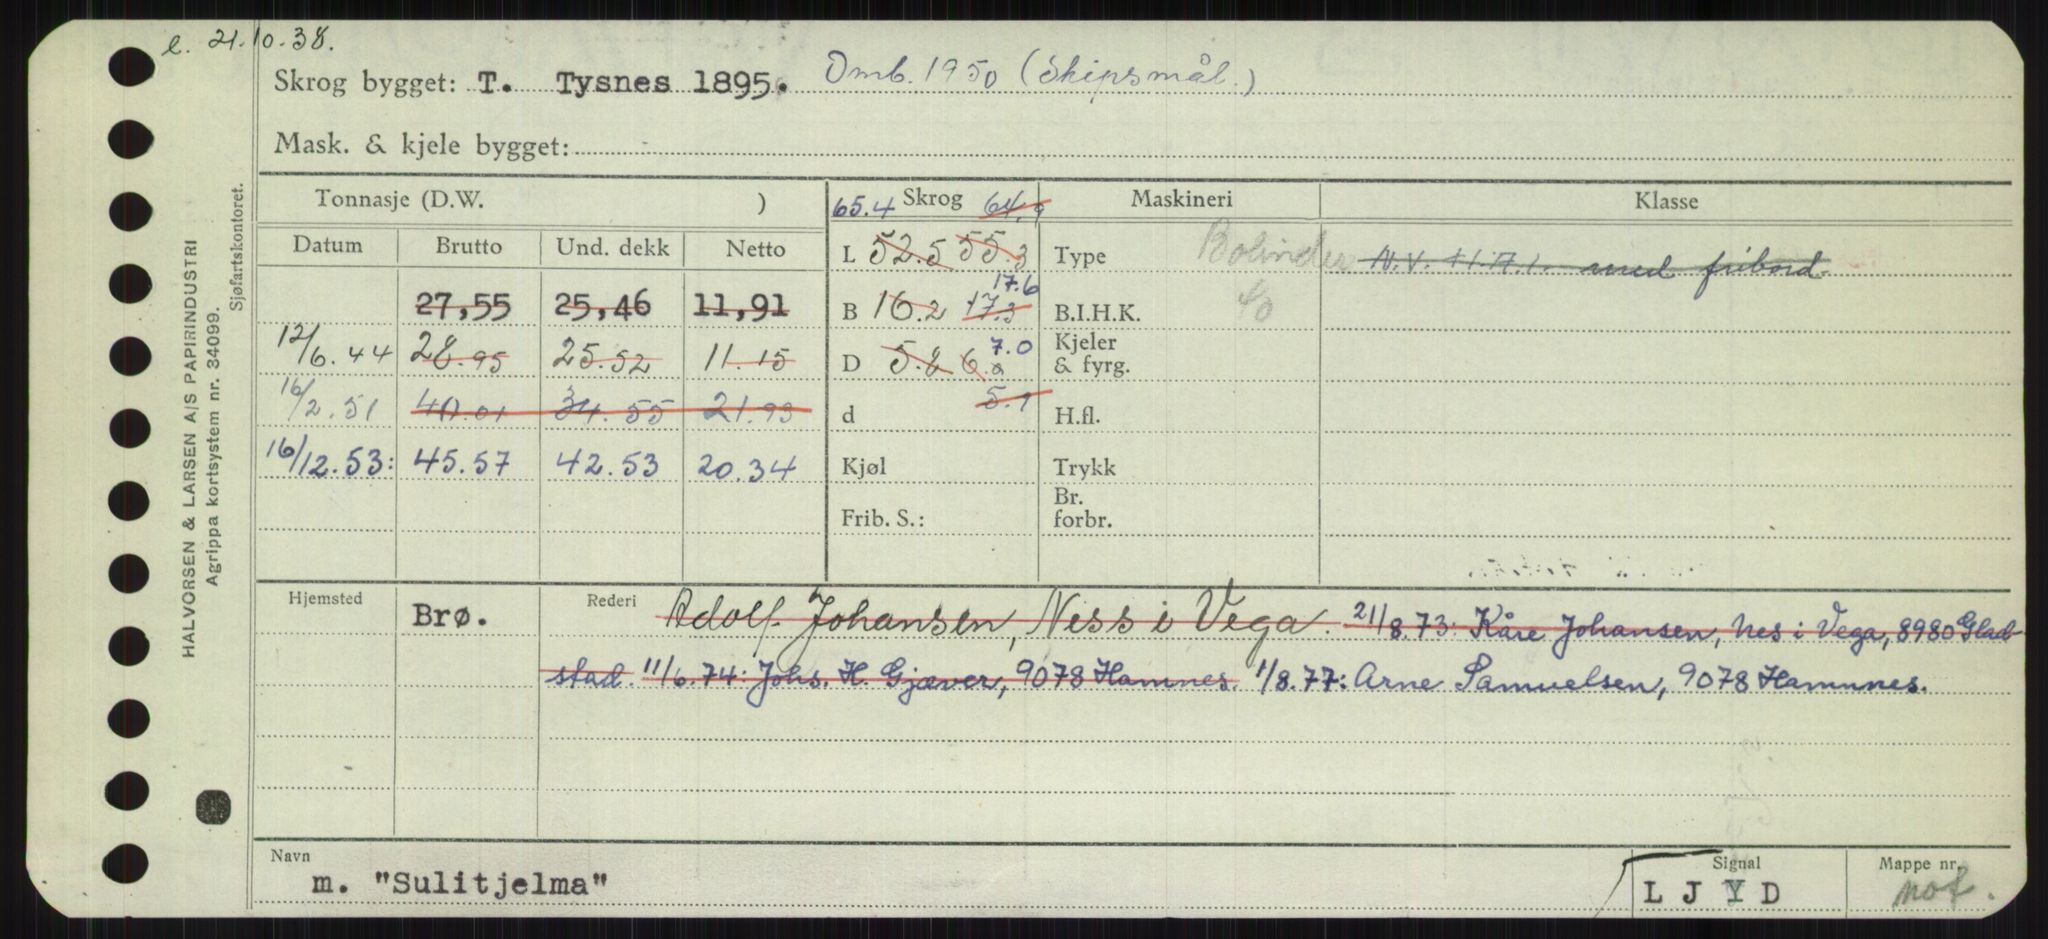 e. 21.10.38.
Skrog bygget: T. Tysnes 1895. Omb. 1950 (Skipsmål.)
Mask. & kjele bygget:
Tonnasje (D.W. ) 65.4 Skrog 64,9 Maskineri Klasse
Datum Brutto Und. dekk Netto L 52.5 55.3 Type Bolinder N.V. H.A.1. med fribord
27,55 25,46 11,91 B 16.2 17.3 17.6 B.I.H.K. 40
12/6.44 28.95 25.52 11.15 D 5.8 6.2 7.0 Kjeler & fyrg.
16/2.51 40.01 34.55 21.93 d 5.9 H.fl.
16/12.53: 45.57 42.53 20.34 Kjøl Trykk
Frib. S.: Br. forbr.
Hjemsted Brø. Rederi Adolf Johansen, Ness i Vega. 21/8.73: Kåre Johansen, Nes i Vega, 8980 Glad-
stad. 11/6.74: Johs. H. Gjæver, 9078 Hamnes. 1/8.77: Arne Samuelsen, 9078 Hamnes.
Navn Signal Mappe nr.
m. "Sulitjelma" LJYD not.
HALVORSEN & LARSEN A/S PAPIRINDUSTRI
Agrippa kortsystem nr. 34099.
Sjøfartskontoret.